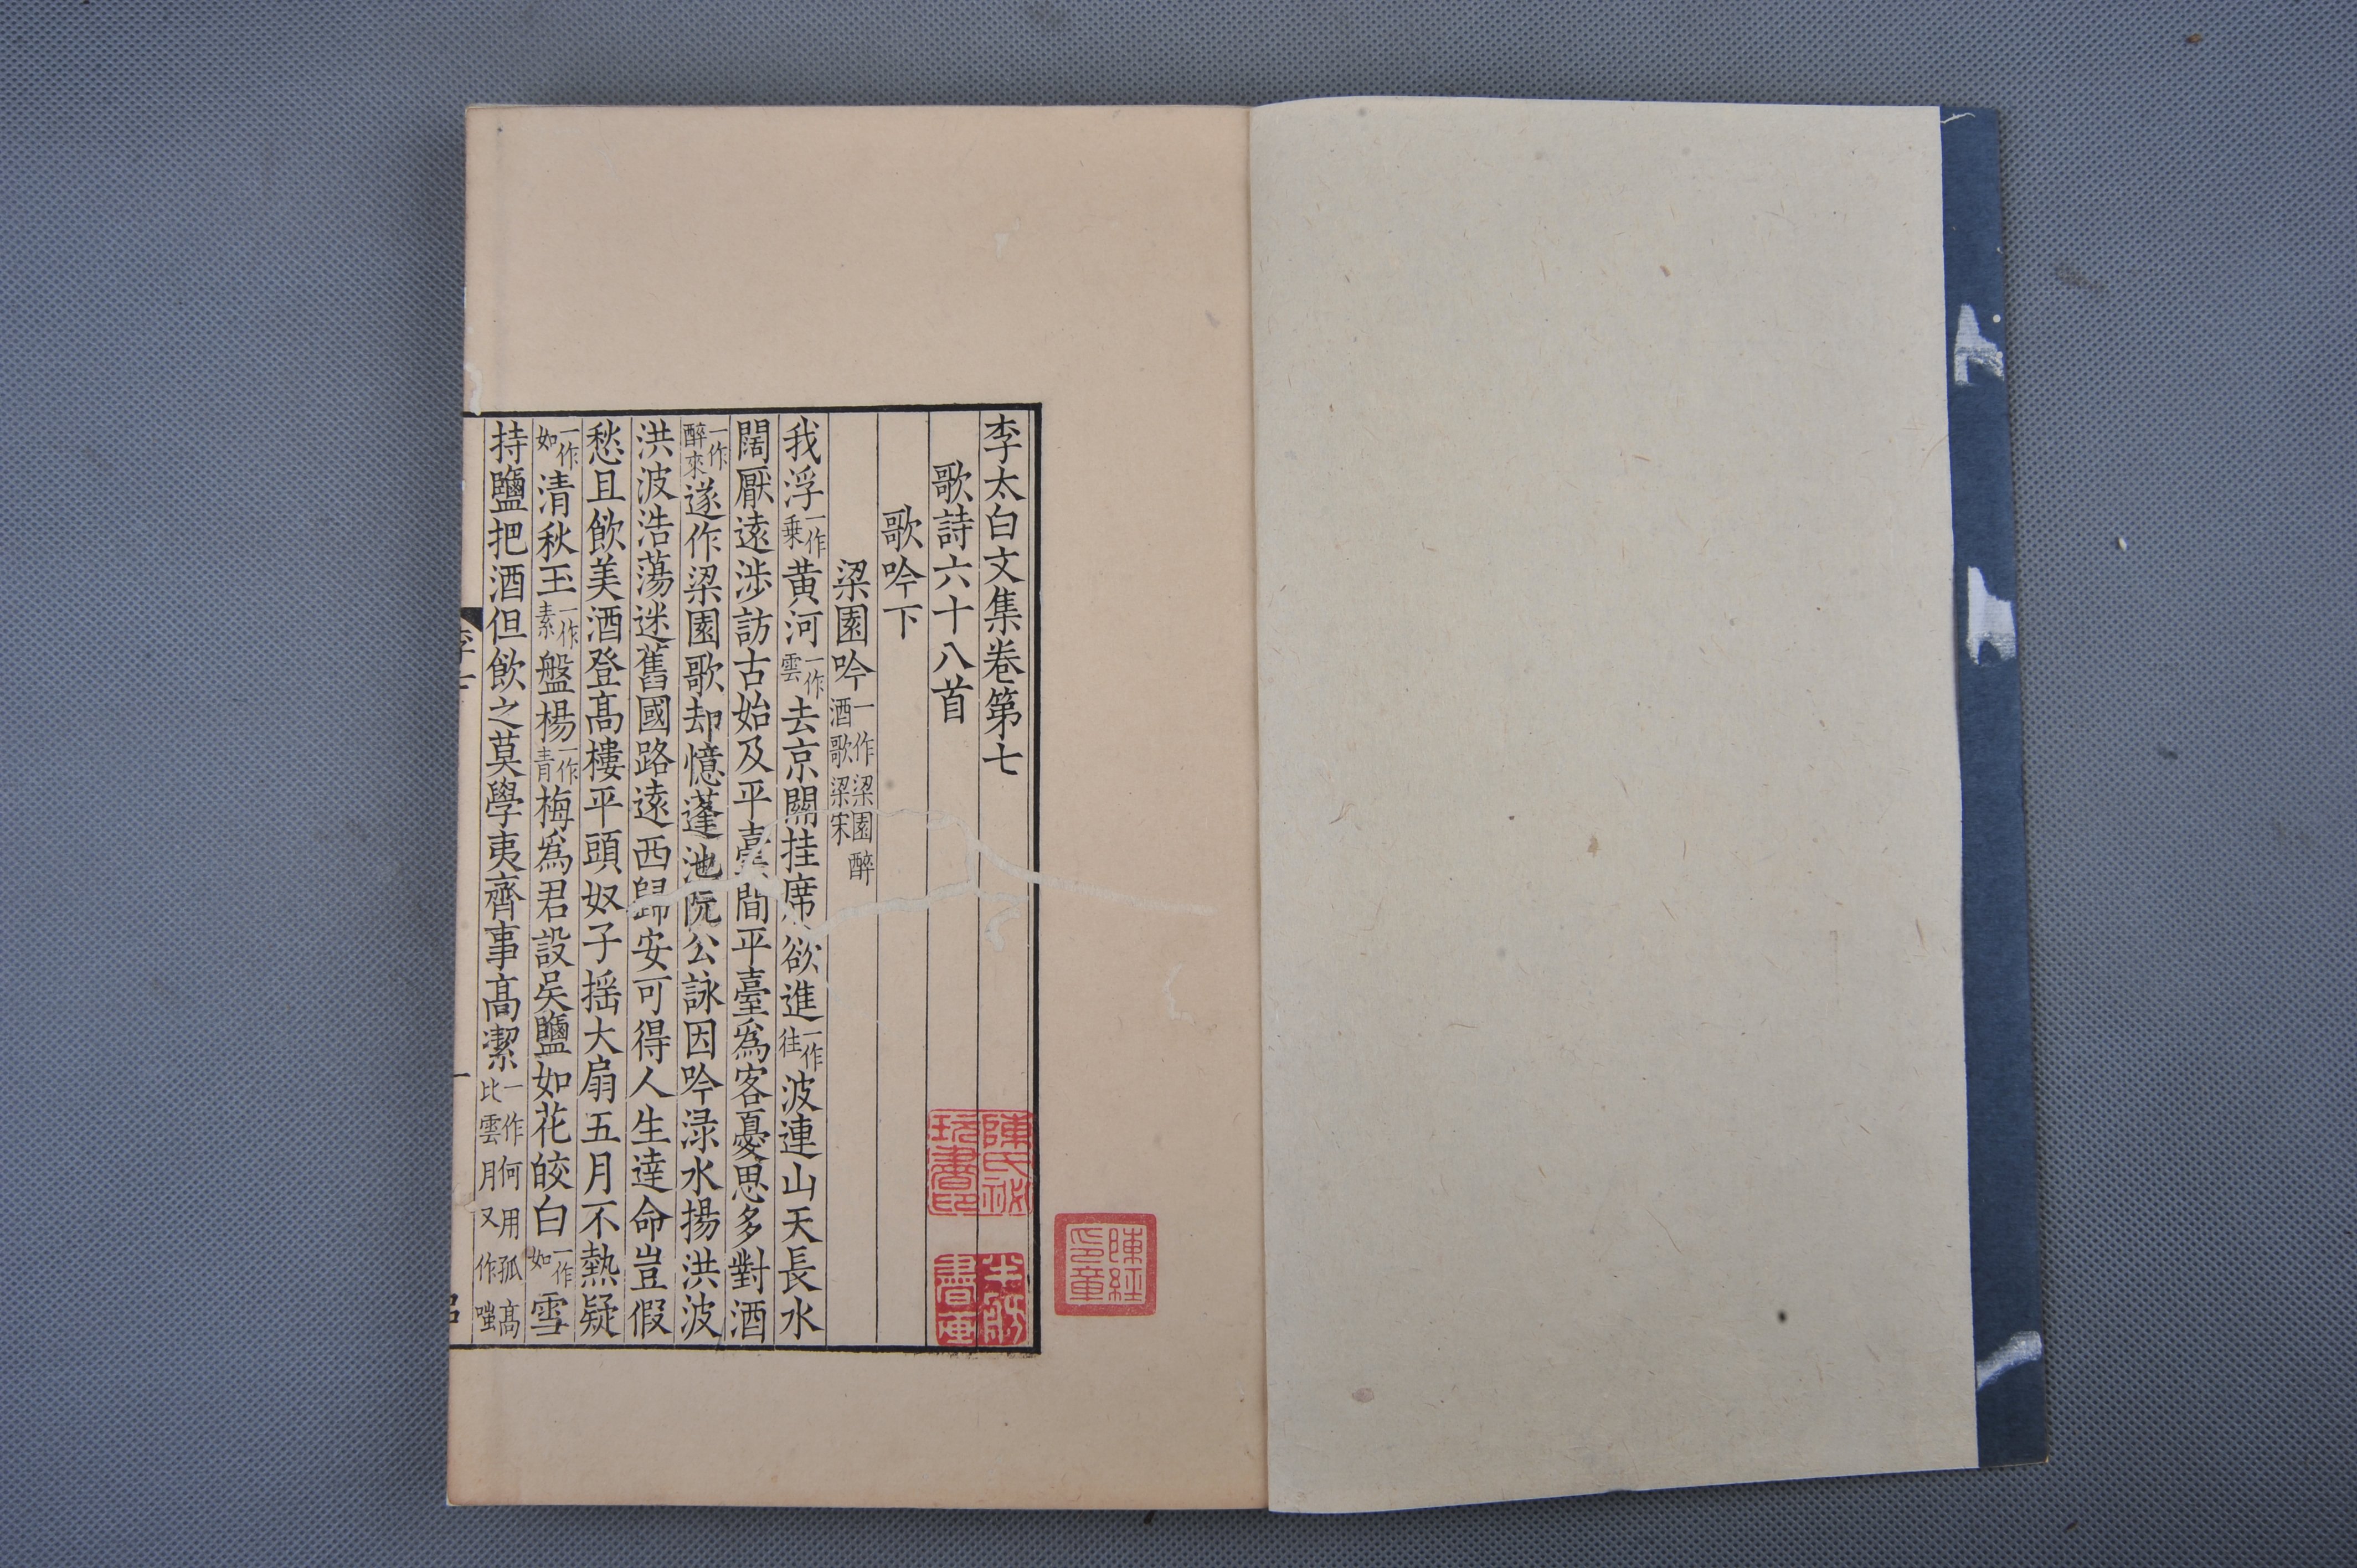 李太白文集卷第七
歌詩六十八首
歌吟下
梁園吟一作梁園醉酒歌梁宋
我浮一作乗黄河一作雲去京關挂席欲進一作往波連山天長水
闊厭遠涉訪古始及平臺間平臺爲客憂思多對酒
一作醉來遂作梁園歌却憶蓬池阮公詠因吟渌水揚洪波
洪波浩蕩迷舊國路遠西歸安可得人生達命豈假
愁且飲美酒登高樓平頭奴子揺大扇五月不熱疑
一作如清秋玉一作素盤楊一作青梅爲君設吴鹽如花皎白一作如雪
持鹽把酒但飲之莫學夷齊事髙潔一作何用孤髙比雲月又作嗤
陳氏
玩書印
書庫
陳經
印章